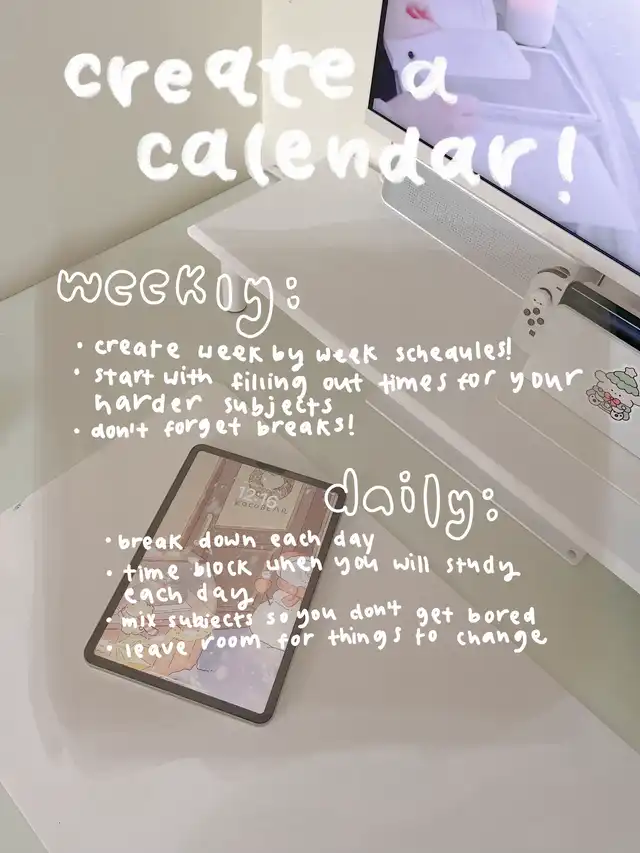 create a
calendar!
weekly:
• create week by week schedules!
• start with filling out times for your
harder subjects
• don't forget breaks!
daily:
• break down each day
• time block when you will study
each day
• mix subjects so you don't get bored
• leave room for things to change
12:16